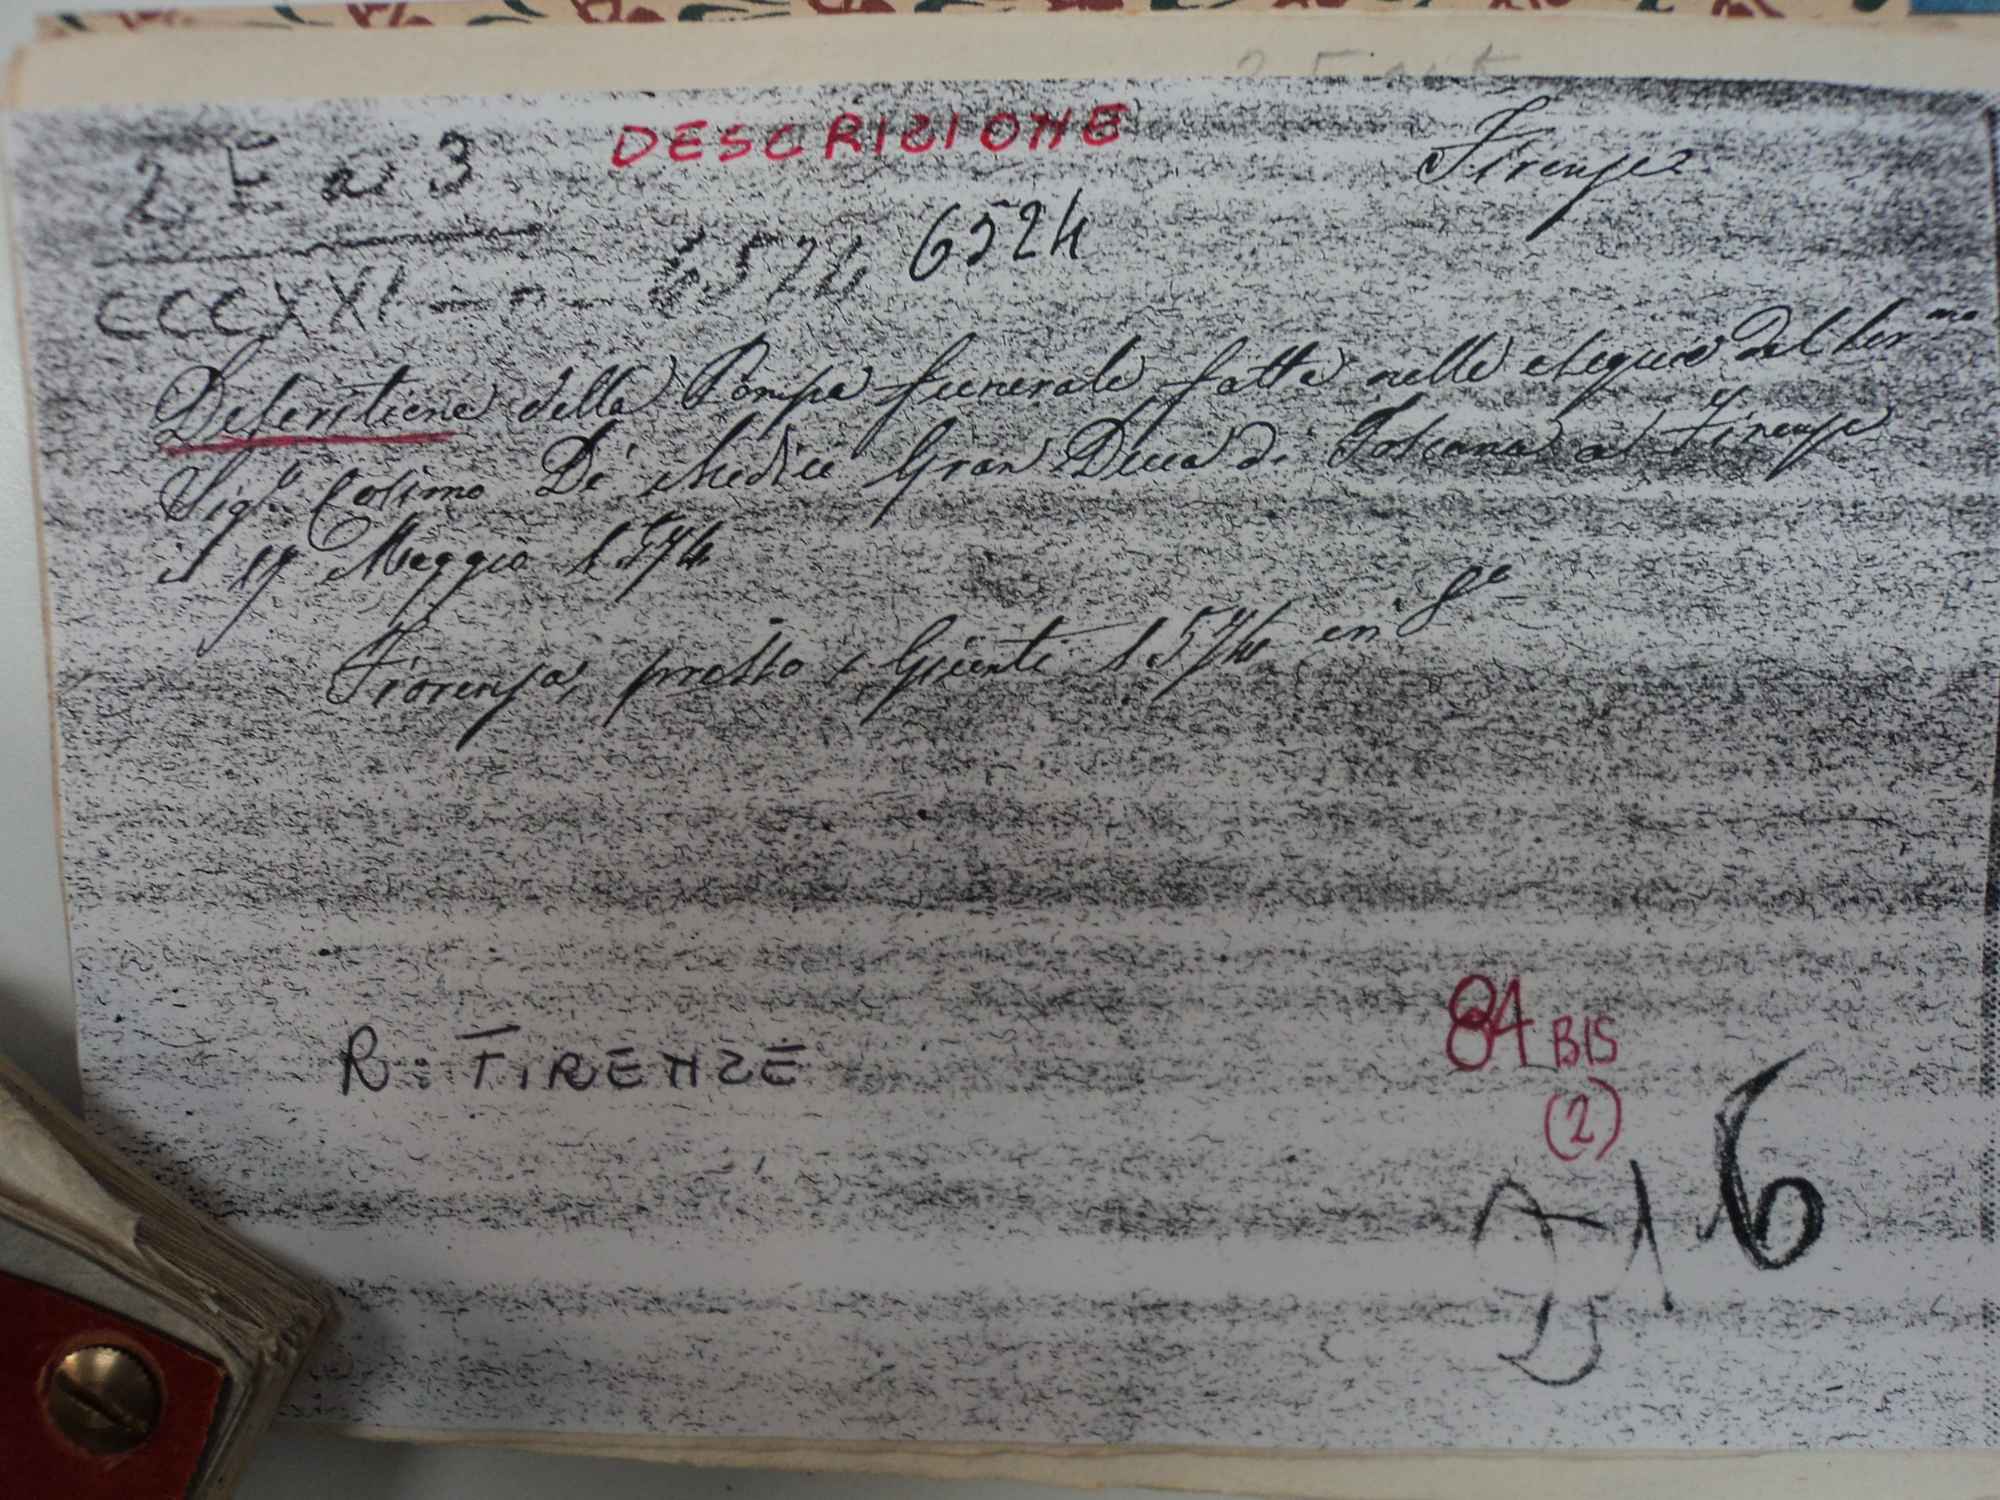 DESCRIZIONE
2 F a 3
Firenze
CCCXXI - n - 6524 6524
Descritione della Pompa funerale fatta nelle esequie del Ser mo
Sigr. Cosimo De' Medici Gran Duca di Toscana a Firenze
il 17 Maggio 1574
Fiorenza, presso i Giunti 1574 in 8°
R: FIRENZE
84 BIS
(2)
6